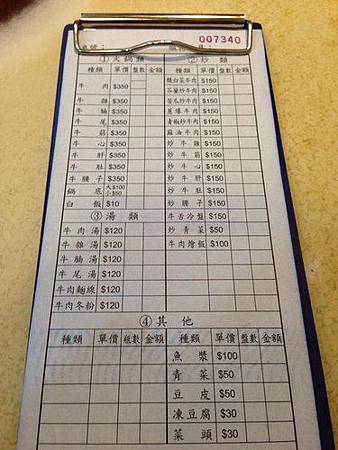 007340
①火鍋類
種類 單價 盤數 金額
牛肉 $350
牛雜 $350
牛腩 $350
牛尾 $350
牛筋 $350
牛心 $350
牛肝 $350
牛肚 $350
牛腰子 $350
鍋底 大$100 小$50
白飯 $10
③湯類
牛肉湯 $120
牛雜湯 $120
牛腩湯 $120
牛尾湯 $120
牛肉麵線 $120
牛肉冬粉 $120
②炒類
種類 單價 盤數 金額
酸白菜牛肉 $150
芥蘭炒牛肉 $150
苦瓜炒牛肉 $150
蔥爆牛肉 $150
青椒炒牛肉 $150
麻油牛肉 $150
炒牛雜 $150
炒牛筋 $150
炒牛心 $150
炒牛肝 $150
炒牛肚 $150
炒腰子 $150
牛舌冷盤 $150
炒青菜 $50
牛肉燴飯 $100
④其他
種類 單價 瓶數 金額 種類 單價 盤數 金額
魚漿 $100
青菜 $50
豆皮 $50
凍豆腐 $30
菜頭 $30